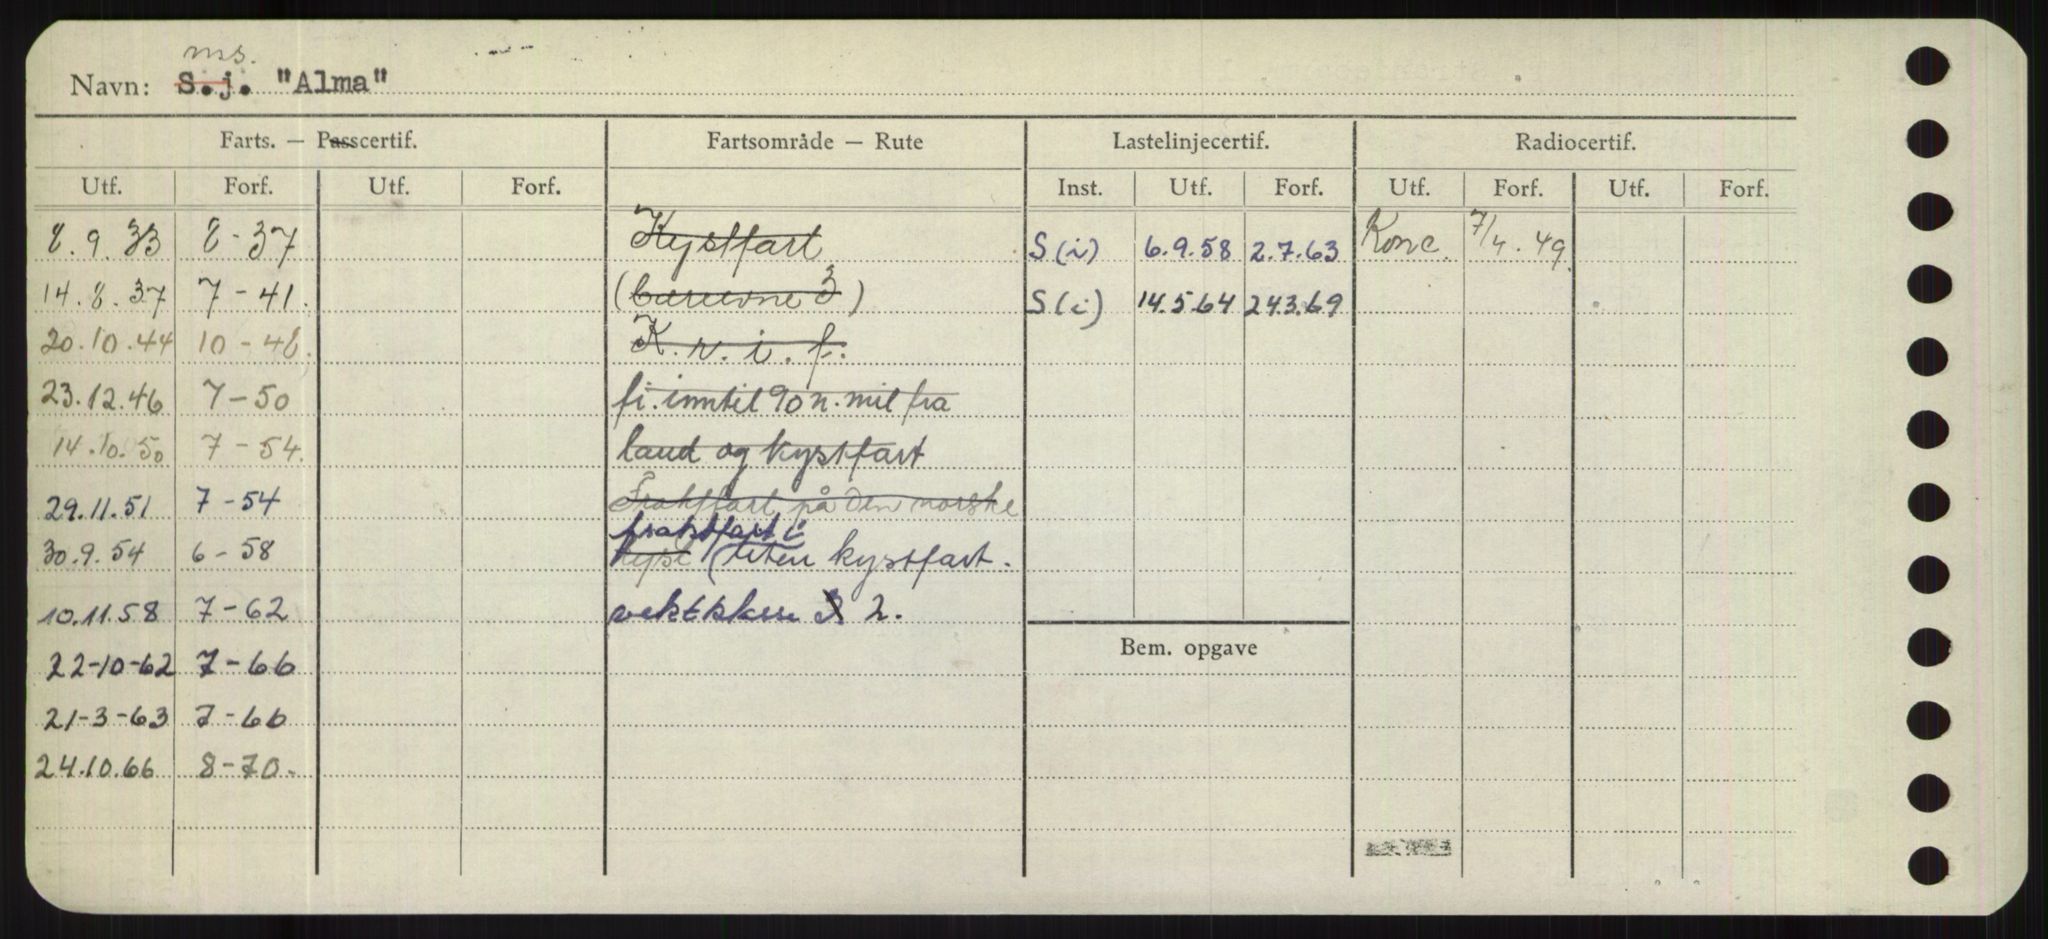 ms.
Navn: S.j. "Alma"
Farts. — Passcertif. Fartsområde — Rute Lastelinjecertif. Radiocertif.
Utf. Forf. Utf. Forf. Inst. Utf. Forf. Utf. Forf. Utf. Forf.
8.9.33 8-37 Kystfart S (i) 6.9.58 2.7.63 7/4.49
14.8.37 7-41. (bæreevne 3) S (i) 14.5.64 24.3.69
20.10.44 10-48. K.r.i.f.
23.12.46 7-50 fi. inntil 90 n. mil fra
14.10.50 7-54. land og kystfart
29.11.51 7-54 Fraktfart på den norske
fraktfart i
30.9.54 6-58 kyst liten kystfart.
10.11.58 7-62 vektklasse 3 2.
22-10-62 7-66 Bem. opgave
21-3-63 7-66
24.10.66 8-70.